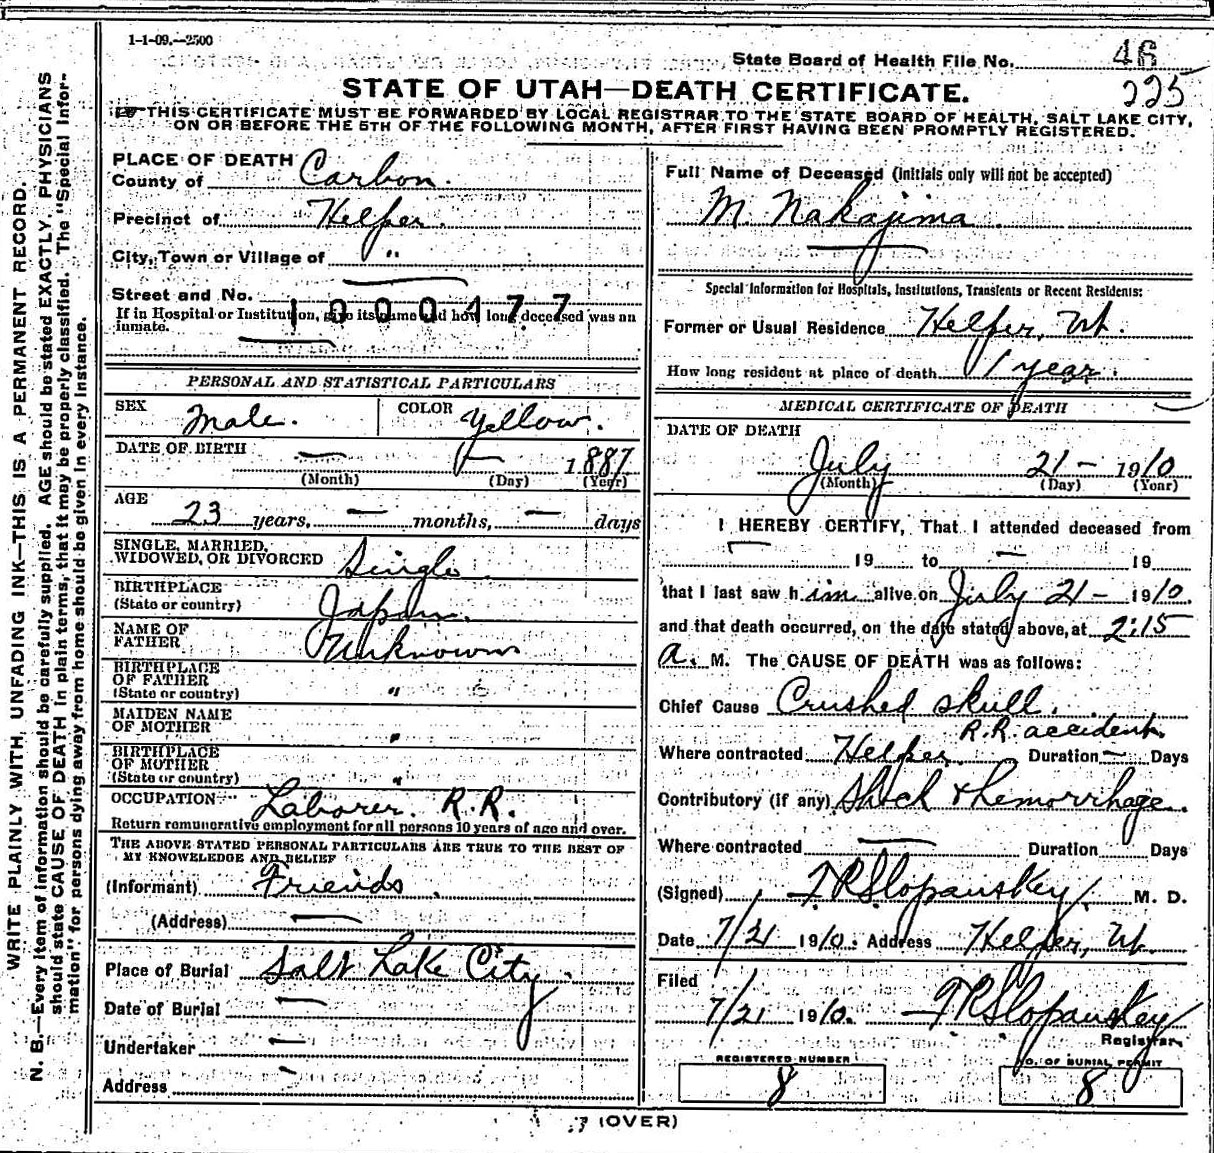 1-1-09.—2500
State Board of Health File No. 46
225
STATE OF UTAH—DEATH CERTIFICATE.
THIS CERTIFICATE MUST BE FORWARDED BY LOCAL REGISTRAR TO THE STATE BOARD OF HEALTH, SALT LAKE CITY,
ON OR BEFORE THE 5TH OF THE FOLLOWING MONTH, AFTER FIRST HAVING BEEN PROMPTLY REGISTERED.
WRITE PLAINLY WITH UNFADING INK—THIS IS A PERMANENT RECORD.
N. B.—Every item of information should be carefully supplied. AGE should be stated EXACTLY. PHYSICIANS
should state CAUSE OF DEATH in plain terms, that it may be properly classified. The "Special Infor-
mation" for persons dying away from home should be given in every instance.
PLACE OF DEATH
County of Carbon.
Precinct of Helper.
City, Town or Village of "
Street and No.
1000477
If in Hospital or Institution, give its name and how long deceased was an
inmate.
PERSONAL AND STATISTICAL PARTICULARS
SEX Male. COLOR Yellow.
DATE OF BIRTH — — 1887
(Month) (Day) (Year)
AGE
23 years, — months, — days
SINGLE, MARRIED,
WIDOWED, OR DIVORCED Single
BIRTHPLACE
(State or country) Japan.
NAME OF
FATHER Unknown
BIRTHPLACE
OF FATHER
(State or country) "
MAIDEN NAME
OF MOTHER "
BIRTHPLACE
OF MOTHER
(State or country) "
OCCUPATION Laborer. R.R.
Return remunerative employment for all persons 10 years of age and over.
THE ABOVE STATED PERSONAL PARTICULARS ARE TRUE TO THE BEST OF
MY KNOWELEDGE AND BELIEF
(Informant) Friends.
(Address) —
Place of Burial Salt Lake City.
Date of Burial —
Undertaker —
Address -
Full Name of Deceased (initials only will not be accepted)
M. Nakajima
Special Information for Hospitals, Institutions, Transients or Recent Residents:
Former or Usual Residence Helper, Ut.
How long resident at place of death 1 year.
MEDICAL CERTIFICATE OF DEATH
DATE OF DEATH
July 21 — 1910
(Month) (Day) (Year)
I HEREBY CERTIFY, That I attended deceased from
— 19 to — 19
that I last saw him alive on July 21 — 1910.
and that death occurred, on the date stated above, at 2:15
a. M. The CAUSE OF DEATH was as follows:
Chief Cause Crushed skull.
R.R. accident.
Where contracted Helper. Duration — Days
Contributory (if any) Shock & hemorrhage.
Where contracted — Duration Days
(Signed) T R Slopanskey M. D.
Date 7/21 1910. Address Helper, Ut.
Filed
7/21 1910. T R Slopanskey
Registrar.
REGISTERED NUMBER
8
NO. OF BURIAL PERMIT
8
(OVER)